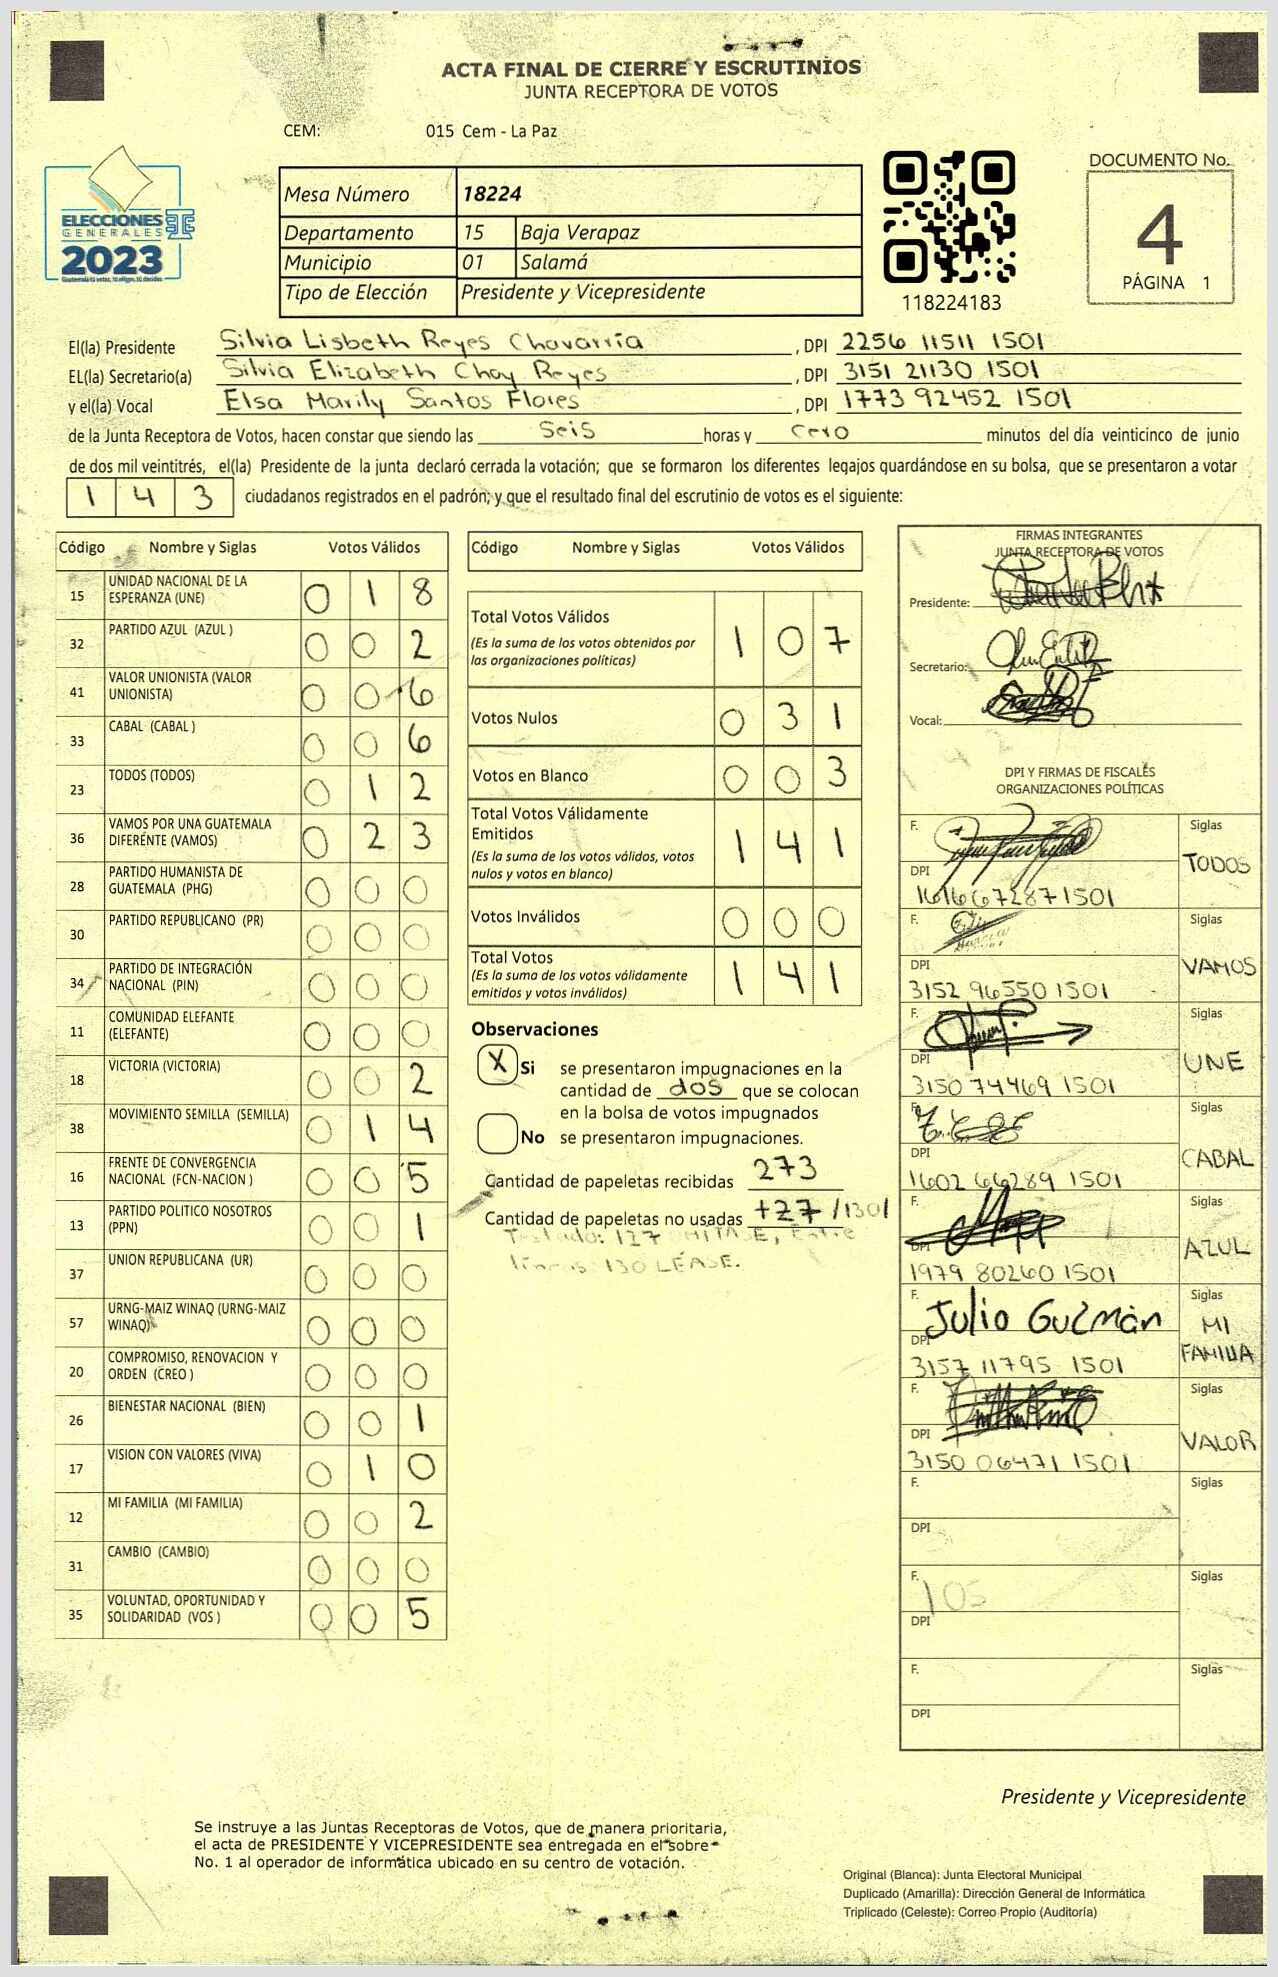 ACTA FINAL DE CIERRE Y ESCRUTINIOS
JUNTA RECEPTORA DE VOTOS
CEM: 015 Cem - La Paz
ELECCIONES
GENERALES
2023
Mesa Número 18224
Departamento 15 Baja Verapaz
Municipio 01 Salamá
Tipo de Elección Presidente y Vicepresidente
118224183
DOCUMENTO No.
4
PÁGINA 1
El(la) Presidente Silvia Lisbeth Reyes Chavarría , DPI 2256 11511 1501
EL(la) Secretario(a) Silvia Elizabeth Choy Reyes , DPI 3151 21130 1501
y el(la) Vocal Elsa Marily Santos Flores , DPI 1773 92452 1501
de la Junta Receptora de Votos, hacen constar que siendo las seis horas y cero minutos del día veinticinco de junio
de dos mil veintitrés, el(la) Presidente de la junta declaró cerrada la votación; que se formaron los diferentes legajos guardándose en su bolsa, que se presentaron a votar
1 4 3 ciudadanos registrados en el padrón; y que el resultado final del escrutinio de votos es el siguiente:
Código Nombre y Siglas Votos Válidos
15 UNIDAD NACIONAL DE LA ESPERANZA (UNE) 0 1 8
32 PARTIDO AZUL (AZUL ) 0 0 2
41 VALOR UNIONISTA (VALOR UNIONISTA) 0 0 6
33 CABAL (CABAL ) 0 0 6
23 TODOS (TODOS) 0 1 2
36 VAMOS POR UNA GUATEMALA DIFERENTE (VAMOS) 0 2 3
28 PARTIDO HUMANISTA DE GUATEMALA (PHG) 0 0 0
30 PARTIDO REPUBLICANO (PR) 0 0 0
34 PARTIDO DE INTEGRACIÓN NACIONAL (PIN) 0 0 0
11 COMUNIDAD ELEFANTE (ELEFANTE) 0 0 0
18 VICTORIA (VICTORIA) 0 0 2
38 MOVIMIENTO SEMILLA (SEMILLA) 0 1 4
16 FRENTE DE CONVERGENCIA NACIONAL (FCN-NACION ) 0 0 5
13 PARTIDO POLITICO NOSOTROS (PPN) 0 0 1
37 UNION REPUBLICANA (UR) 0 0 0
57 URNG-MAIZ WINAQ (URNG-MAIZ WINAQ) 0 0 0
20 COMPROMISO, RENOVACION Y ORDEN (CREO ) 0 0 0
26 BIENESTAR NACIONAL (BIEN) 0 0 1
17 VISION CON VALORES (VIVA) 0 1 0
12 MI FAMILIA (MI FAMILIA) 0 0 2
31 CAMBIO (CAMBIO) 0 0 0
35 VOLUNTAD, OPORTUNIDAD Y SOLIDARIDAD (VOS ) 0 0 5
Código Nombre y Siglas Votos Válidos
Total Votos Válidos 1 0 7
(Es la suma de los votos obtenidos por
las organizaciones políticas)
Votos Nulos 0 3 1
Votos en Blanco 0 0 3
Total Votos Válidamente
Emitidos 1 4 1
(Es la suma de los votos válidos, votos
nulos y votos en blanco)
Votos Inválidos 0 0 0
Total Votos 1 4 1
(Es la suma de los votos válidamente
emitidos y votos inválidos)
Observaciones
X Si se presentaron impugnaciones en la
cantidad de dos que se colocan
en la bolsa de votos impugnados
No se presentaron impugnaciones.
Cantidad de papeletas recibidas 273
Cantidad de papeletas no usadas 127 /130/
Testado: 127 OMITASE, Entre
líneas 130 LÉASE.
FIRMAS INTEGRANTES
JUNTA RECEPTORA DE VOTOS
Presidente:
Secretario:
Vocal:
DPI Y FIRMAS DE FISCALES
ORGANIZACIONES POLÍTICAS
F. Siglas TODOS
DPI 1616 67287 1501
F. Siglas VAMOS
DPI 3152 96550 1501
F. Siglas UNE
DPI 3150 74469 1501
F. Siglas CABAL
DPI 1602 66289 1501
F. Siglas AZUL
DPI 1979 80260 1501
F. Julio Guzmán Siglas MI FAMILIA
DPI 3157 11795 1501
F. Siglas VALOR
DPI 3150 06471 1501
F. Siglas
DPI
F. 105 Siglas
DPI
F. Siglas
DPI
Presidente y Vicepresidente
Se instruye a las Juntas Receptoras de Votos, que de manera prioritaria,
el acta de PRESIDENTE Y VICEPRESIDENTE sea entregada en el sobre
No. 1 al operador de informática ubicado en su centro de votación.
Original (Blanca): Junta Electoral Municipal
Duplicado (Amarilla): Dirección General de Informática
Triplicado (Celeste): Correo Propio (Auditoría)